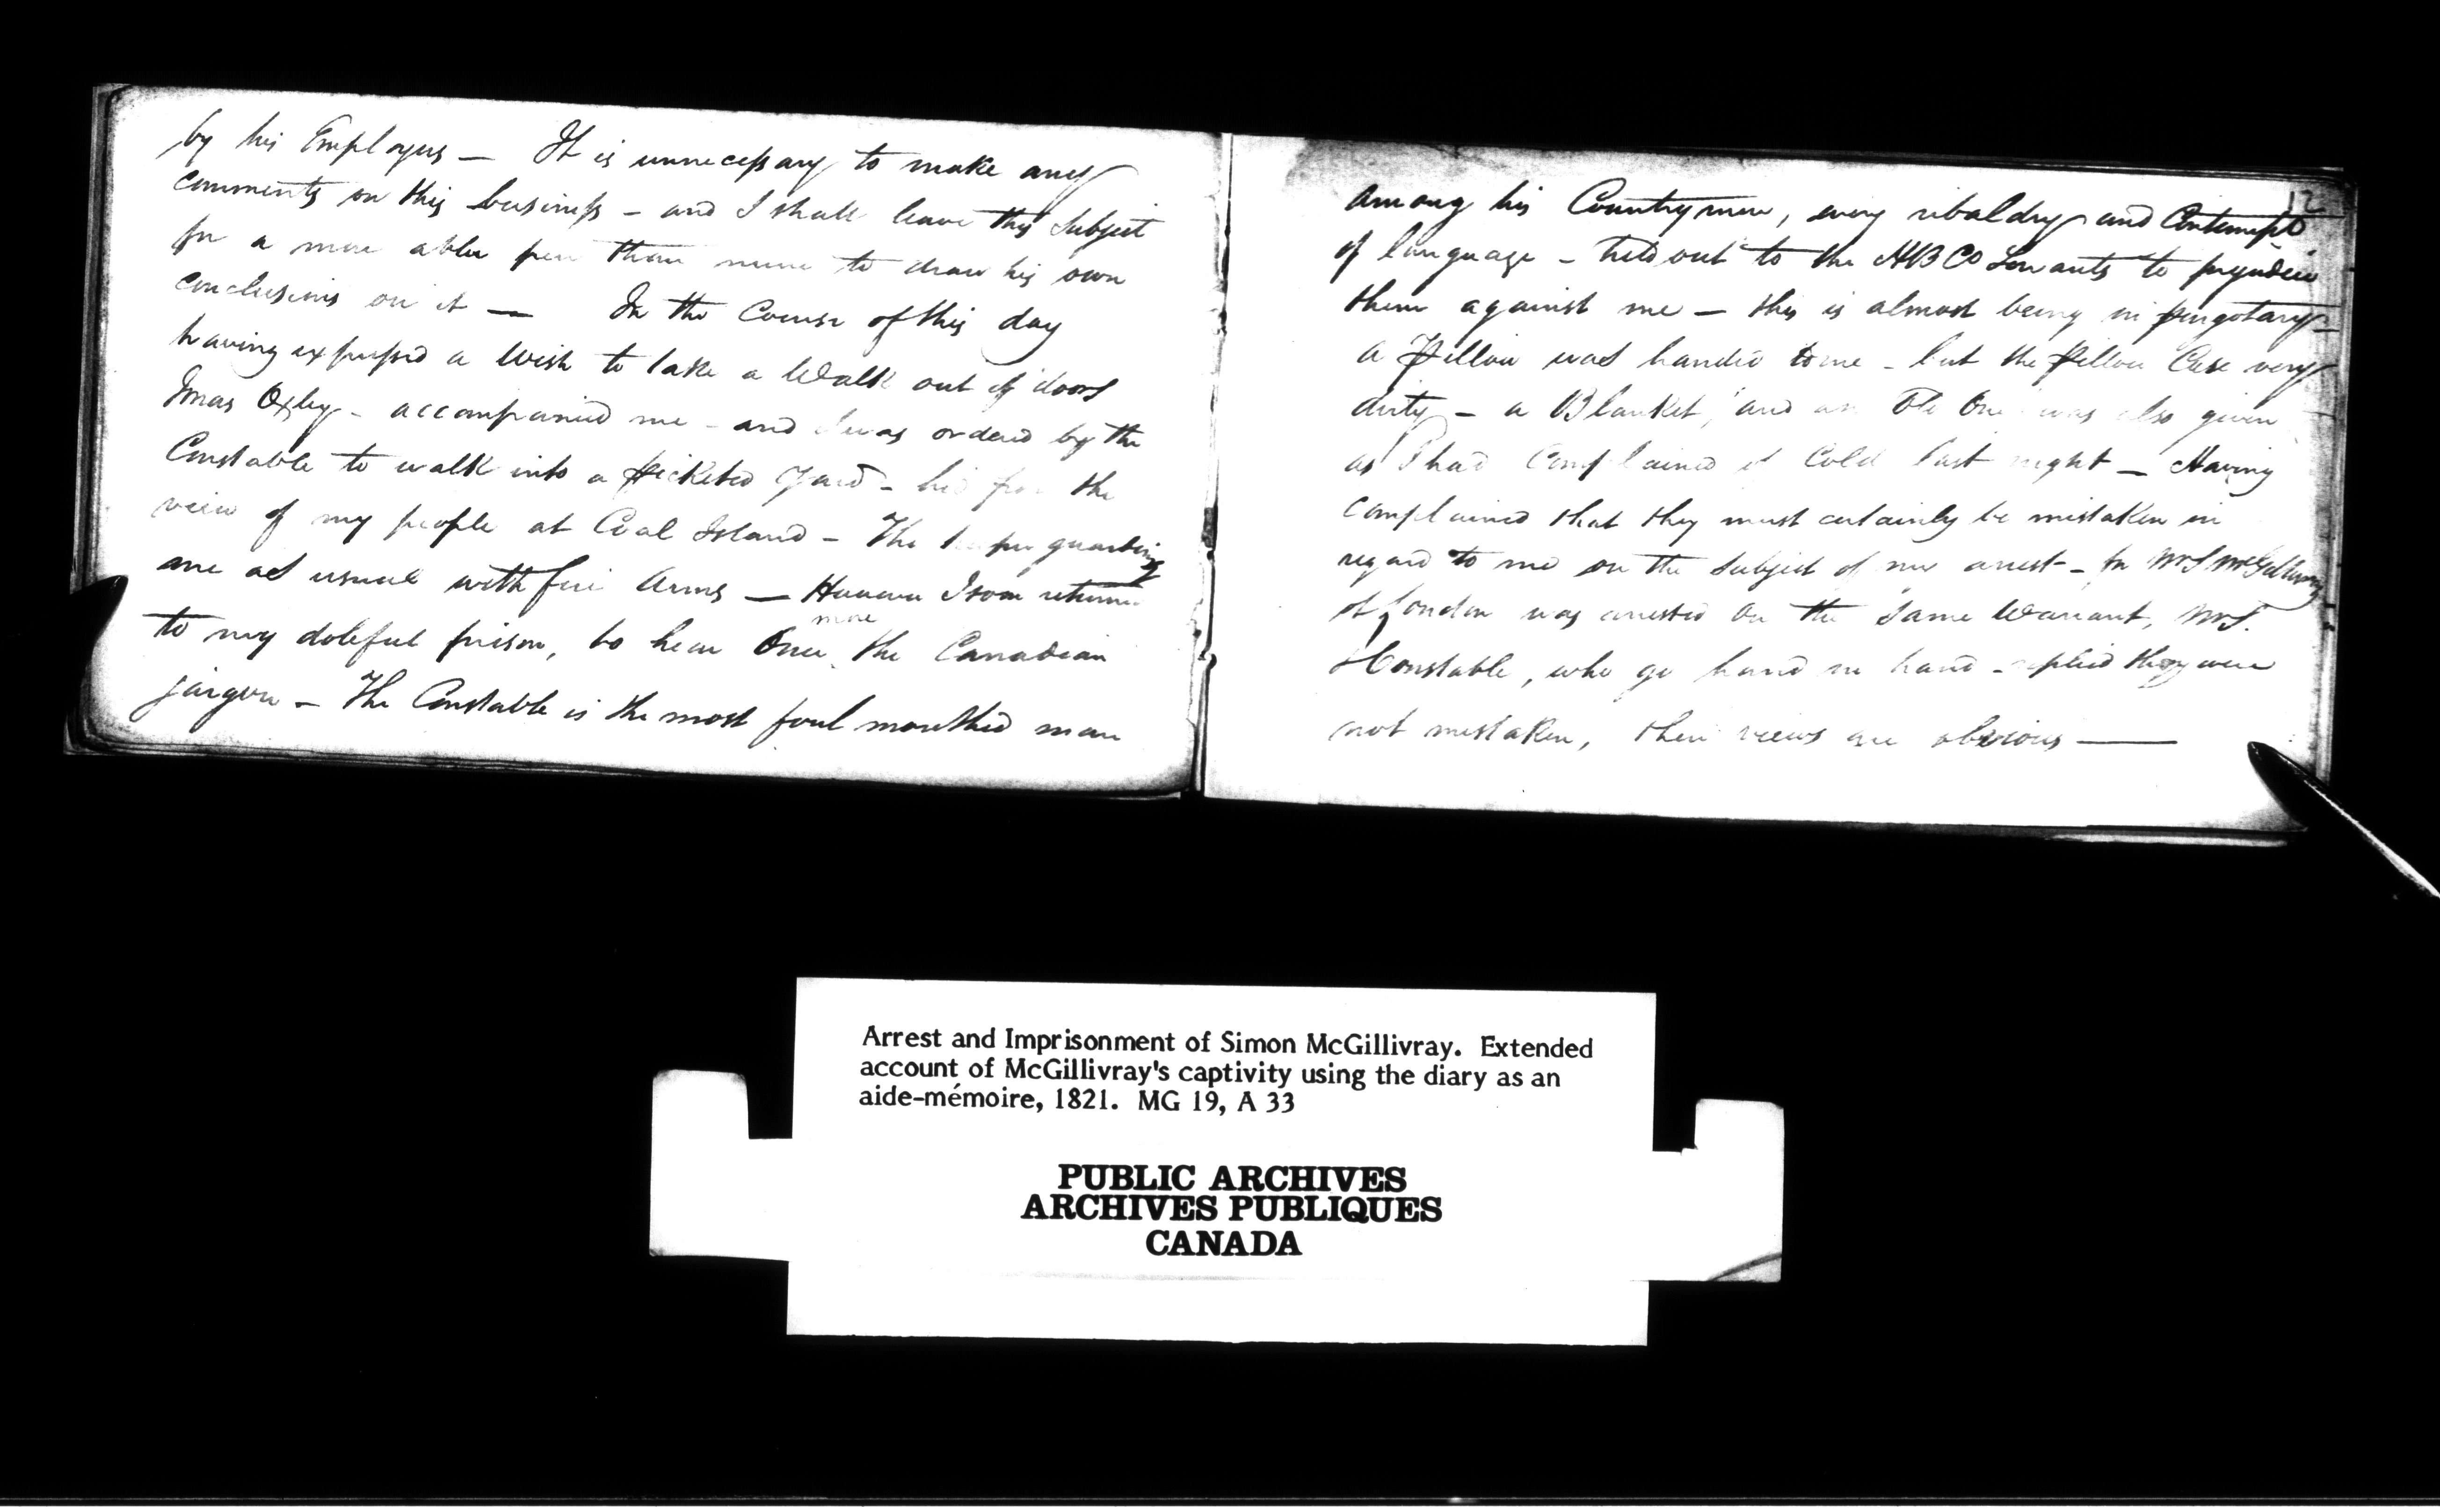 by his Employers — It is unnecessary to make any
comments on this business – and I shall leave this subject
for a more abler pen than mine to draw his own
conclusions on it — In the Course of this day
having expressed a Wish to take a Walk out of doors
Oxley – accompanied me – and I was ordered by the
Constable to walk into a picketed Yard – hid from the
view of my people at Coal Island – The keeper guarding
me as usual with fire Arms — However I soon returned
to my doleful prison, to hear Once more the Canadian
jargon – The Constable is the most foul mouthed man
12
among his Countrymen, every ribaldry and Contempt
of language – held out to the HB Co Servants to prejudice
them against me – this is almost being in purgatory –
a Pillow was handed to me – but the Pillow Case very
dirty – a Blanket, and an Old One was also given
as I had Complained of Cold last night – Having
complained that they must certainly be mistaken in
regard to me on the subject of my arrest – for Mr S McGillivray
of London was arrested on the same Warrant,
Constable, who go hand in hand – replied they were
not mistaken, their views are obvious —
Arrest and Imprisonment of Simon McGillivray. Extended
account of McGillivray's captivity using the diary as an
aide-mémoire, 1821. MG 19, A 33
PUBLIC ARCHIVES
ARCHIVES PUBLIQUES
CANADA